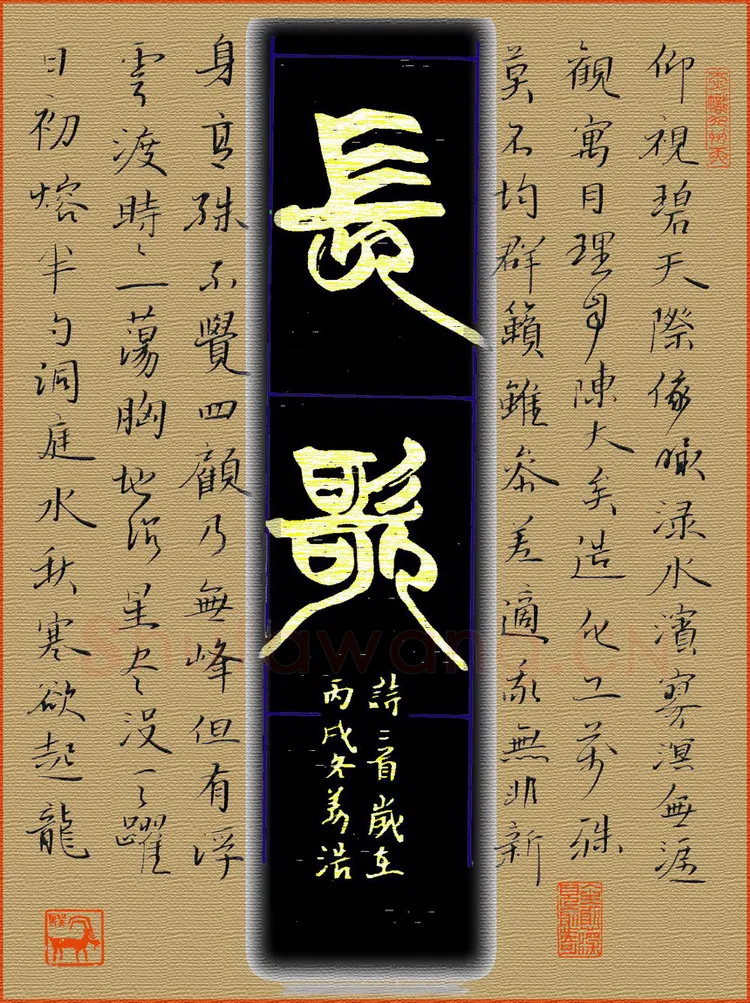 仰視碧天際俯瞰渌水濱寥溟無涯
觀寓目理自陳大矣造化工萬殊
莫不均群籟雖參差適我無非新
長歌
詩二首歲在
丙戌冬姜浩
身高殊不覺四顧乃無峰但有浮
雲渡時々一蕩胸地沉星尽沒天躍
日初熔半勺洞庭水秋寒欲起龍